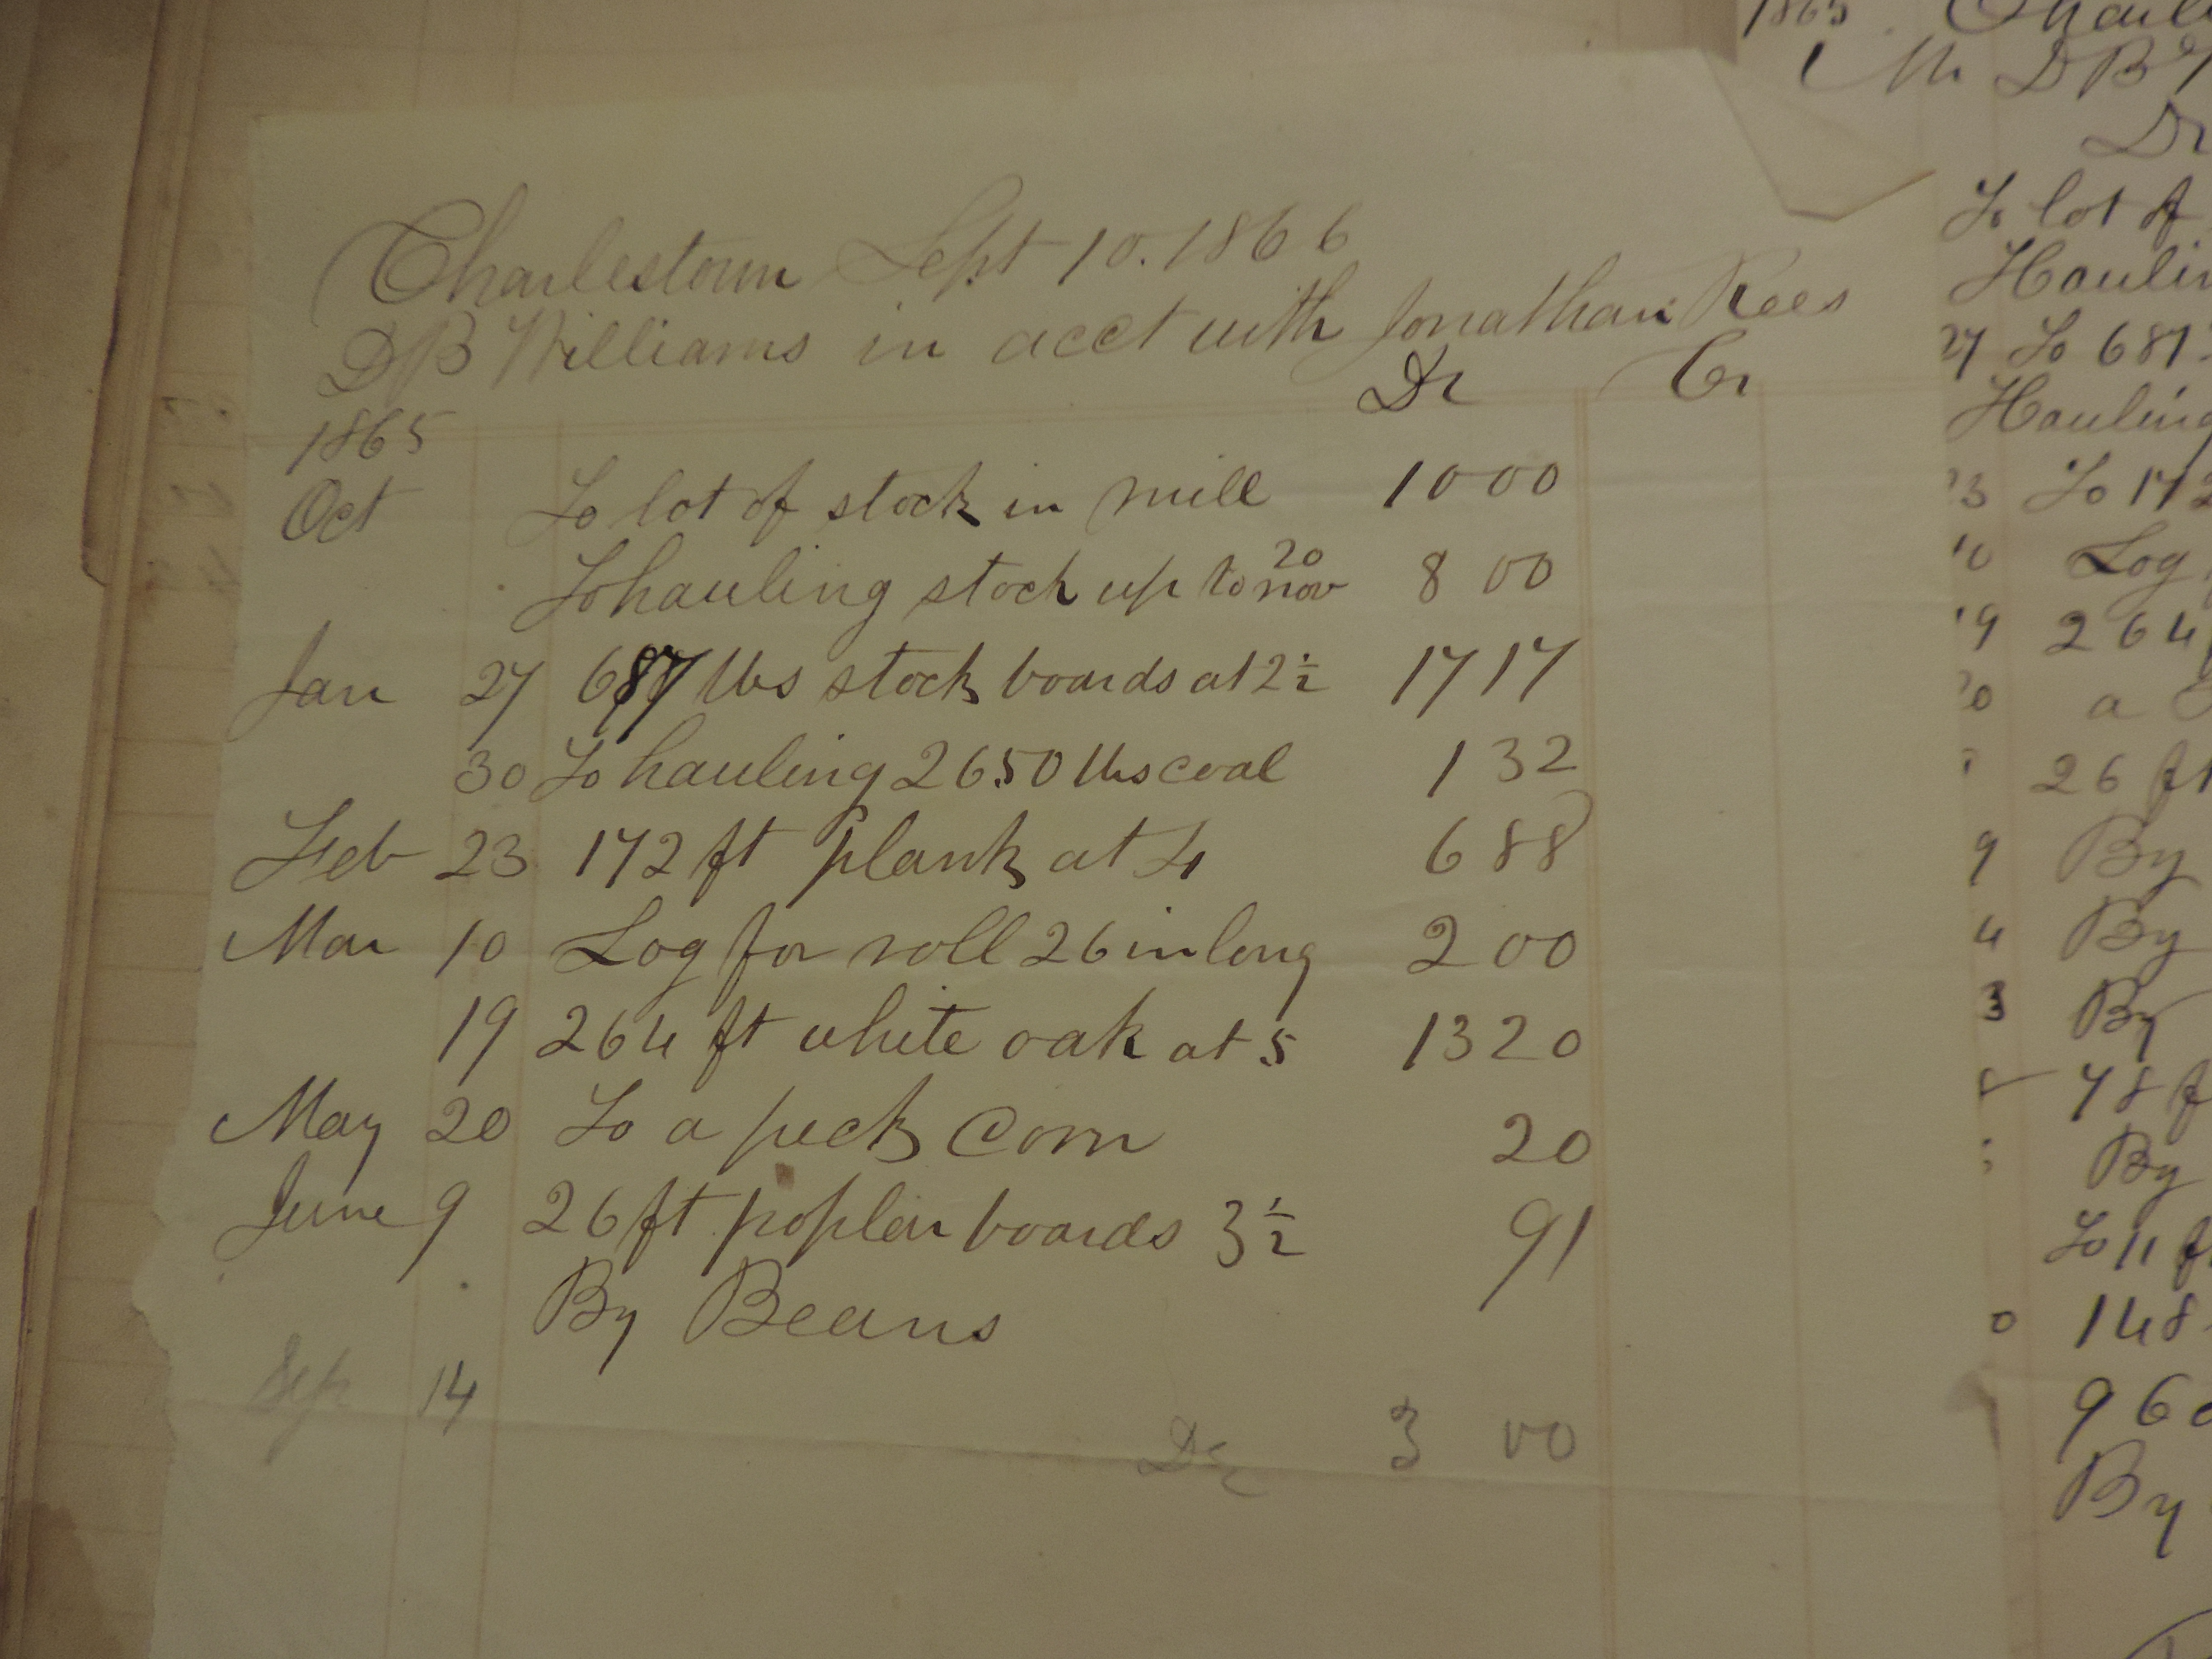 Charlestown Sept 10. 1866
DB Williams in acct with Jonathan Rees
Dr Cr
1865
Oct To lot of stock in mill 10 00
To hauling stock up to 20 nov 8 00
Jan 27 687 lbs stock boards at 2½ 17 17
30 To hauling 2650 lbs coal 1 32
Feb 23 172 ft plank at 4 6 88
Mar 10 Log for roll 26 in long 2 00
19 264 ft white oak at 5 13 20
May 20 To a peck Corn 20
June 9 26 ft poplar boards 3½ 91
By Beans
Sep 14
Dr 3 00
1865
Mr DB
Dr
To lot of
27 To 687
3 To 172
10 Log
19 264
20 a
26 ft
9 By
4 By
3 By
78 f
By
To 11 ft
0 148
960
By